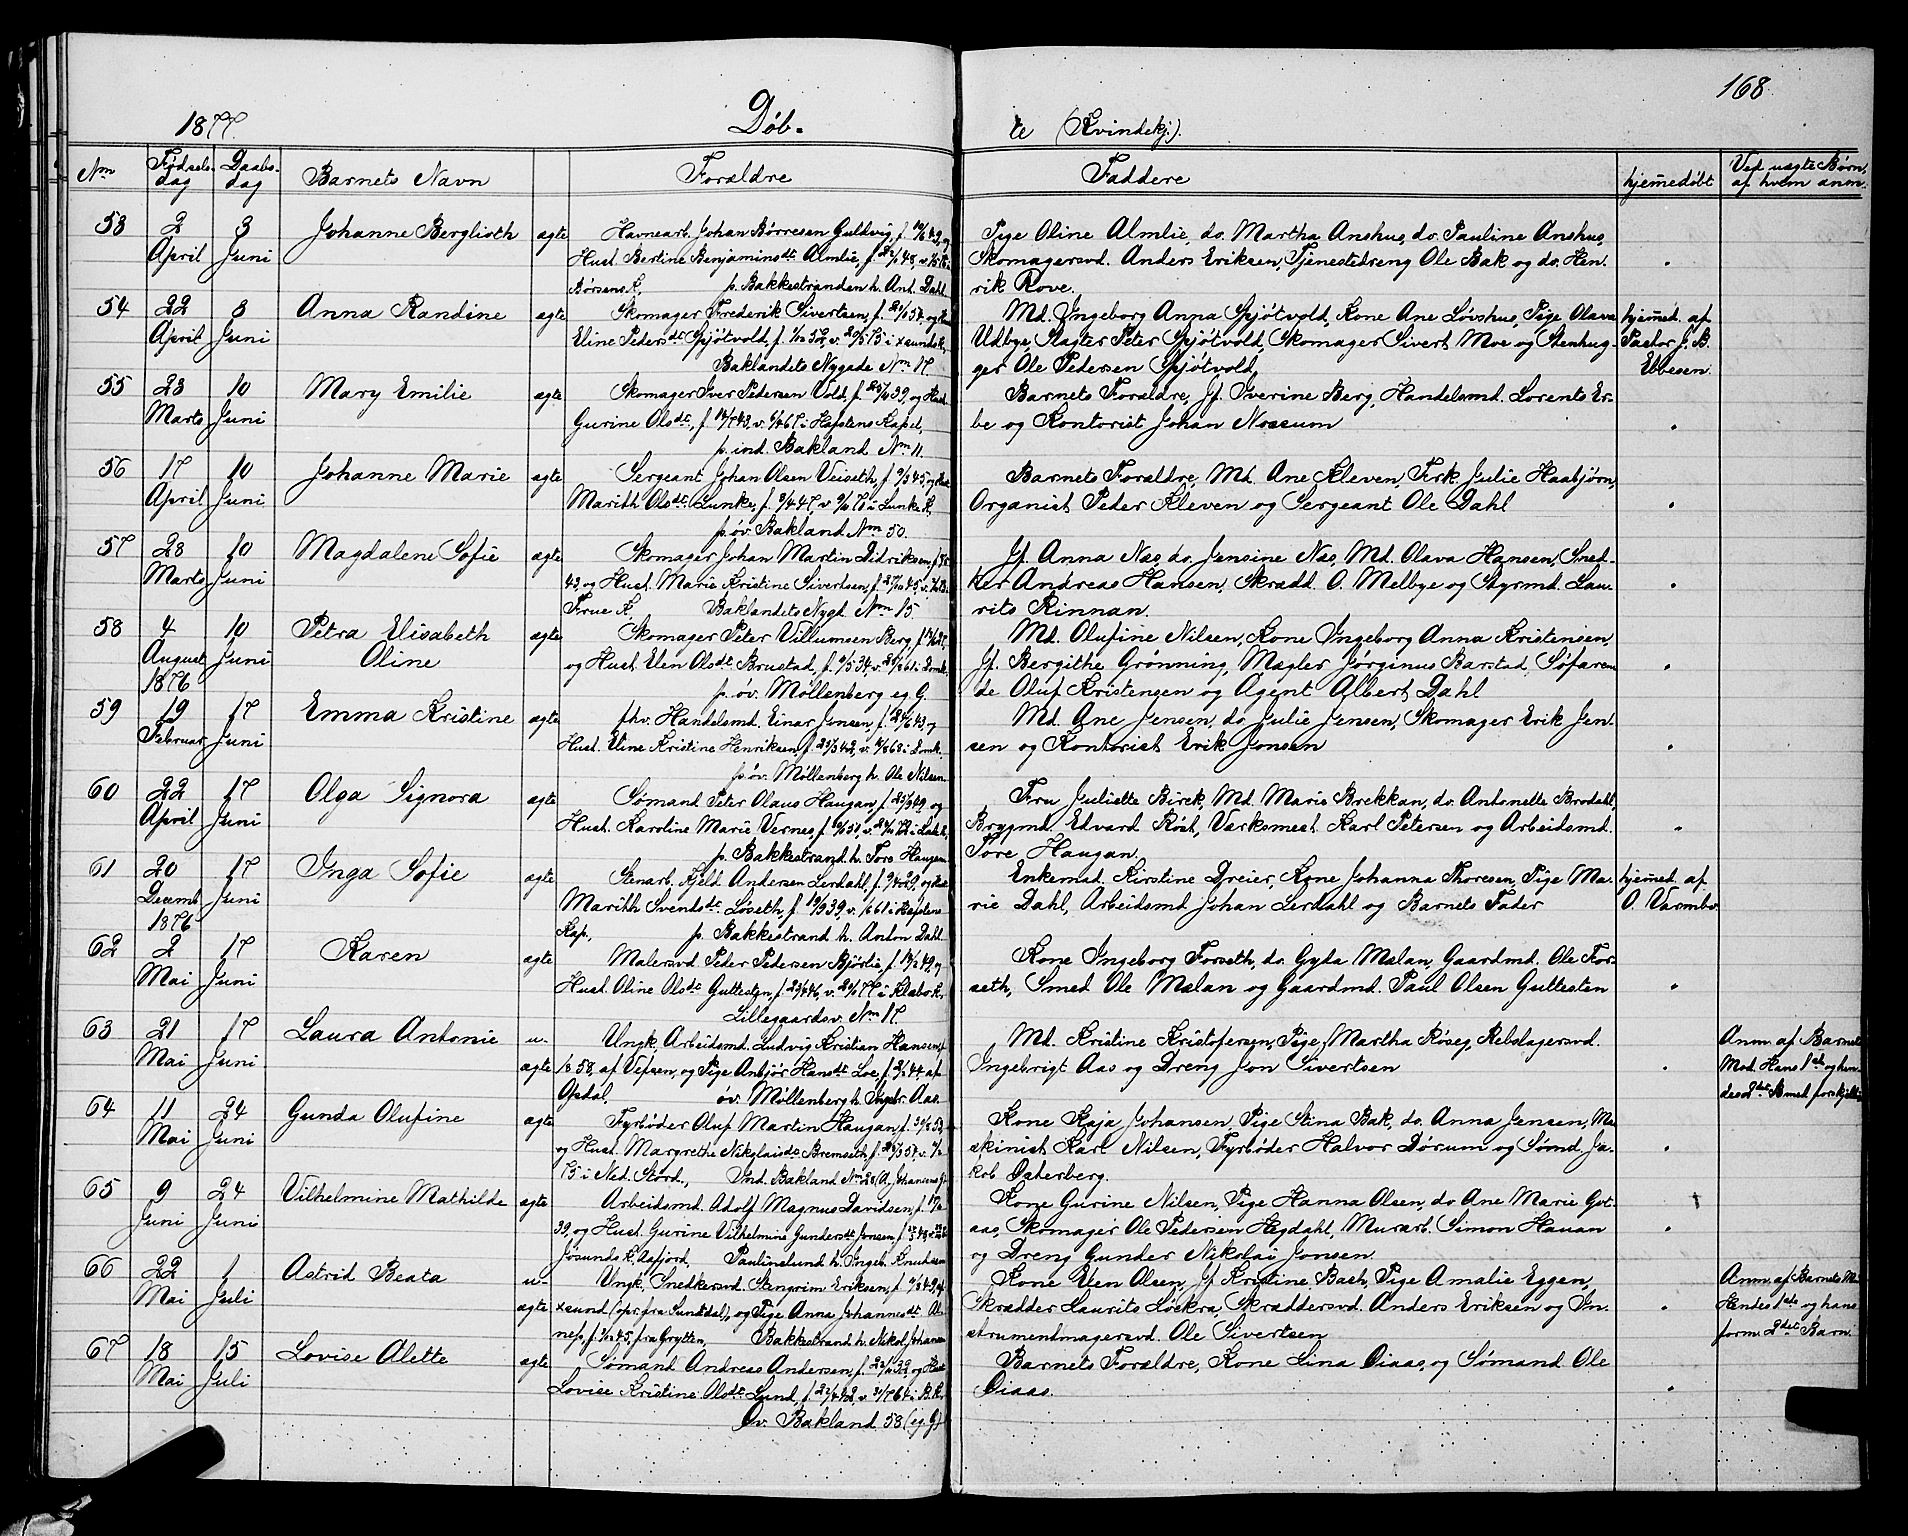 168
1877. Døb- te (Kvindekj.).
Nm Fødsels- dag Daabs- dag Barnets Navn Forældre Faddere hjemmedøbt Ved uægte Børn, af hvem anm.
53 2 April 3 Juni Johanne Berglioth ægte
Havnearb. Johan Børresen Guldvig, og
Hust. Bertine Benjaminsdtr Almlie,
Børsens K. p. Bakkestranden h. Ant. Dahl
Pige Oline Almlie, do. Martha Anshus, do. Pauline Anshus,
Skomagersvd. Anders Eriksen, Tjenestedreng Ole Bak og do. Hen-
rik Rove.
54 22 April 3 Juni Anna Randine ægte
Skomager Frederik Sivertsen, og
Eline Pedersdtr Spjøtvold,
Baklandets Nygade Nm 17.
Md. Ingeborg Anna Spjøtvold, Kone Ane Løvshus, Pige Olava
Udbye, Slagter Peter Spjøtvold, Skomager Sivert Moe og Stenhug-
ger Ole Pedersen Spjøtvold,
hjemmed. af
Pastor J. B.
Ebbesen.
55 23 Marts 10 Juni Mary Emilie ægte
Skomager Iver Pedersen Vold, og Hust.
Gurine Olsdtr, i Hafstens Kapel,
p. ind. Bakland Nm 11.
Barnets Forældre, Jf. Iverine Berg, Handelsmd. Lorents Er-
be og Kontorist Johan Nossum
56 17 April 10 Juni Johanne Marie ægte
Sergeant Johan Olsen Veiseth, og
Marith Olsdtr Lunke, i Lunke K,
p. øv. Bakland Nm 50.
Barnets Forældre, Md. Ane Kleven, Frk. Julie Haabjørn,
Organist Peder Kleven og Sergeant Ole Dahl
57 28 Marts 10 Juni Magdalene Sofie ægte
Skomager Johan Martin Didriksen,
43, og Hust. Marie Kristine Sivertsen,
Frue K. Baklandets Nygd. Nm 15.
Jf. Anna Næs, do. Jensine Næs, Md. Olava Hansen, Sned-
ker Andreas Hansen, Skrædd. O. Melbye og Styrmd. Lau-
rits Rinnan.
58 4 August 1876 10 Juni Petra Elisabeth Oline ægte
Skomager Peter Villumsen Berg,
og Hust. Elen Olsdtr Brustad,
p. øv. Møllenberg eg. G.
Md. Olufine Nilsen, Kone Ingeborg Anna Kristensen,
Jf. Bergithe Grønning, Mægler Jørginus Barstad, Søfaren-
de Oluf Kristensen og Agent Albert Dahl
59 19 Februar 17 Juni Emma Kristine ægte
fhv. Handelsmd. Einar Jensen, og
Hust. Eline Kristine Henriksen,
p. øv. Møllenberg h. Ole Nilsen
Md. Ane Jensen, do. Julie Jensen, Skomager Erik Jen-
sen og Kontorist Erik Jonsen
60 22 April 17 Juni Olga Signora ægte
Sømand Peter Olaus Haugan, og
Hust. Karoline Marie Vernes,
p. Bakkestrand h. Tore Haugan
Fru Juliette Birck, Md. Marie Brekkan, do. Antonette Brodahl,
Brygmd. Edvard Røst, Værksmest. Karl Petersen og Arbeidsmd.
Tore Haugan.
61 20 Decemb 1876 17 Juni Inga Sofie ægte
Stenarb. Kjeld Andersen Lerdahl, og
Marith Svendsdtr Løseth, i Hafstens
Kap, p. Bakkestrand h. Anton Dahl
Enkemad. Kirstine Dreier, Kone Johanna Thoresen, Pige Ma-
rie Dahl, Arbeidsmd Johan Lerdahl og Barnets Fader
hjemmed. af
O. Varmbo
62 2 Mai 17 Juni Karen ægte
Malersvd. Peder Pedersen Bjørlie, og
Hust. Oline Olsdtr Guttesten, i Klæbo K.
Lillegaardsv. Nm 17.
Kone Ingeborg Forseth, do. Gyda Mælan, Gaardmd. Ole For-
seth, Smed Ole Mælan og Gaardmd. Paul Olsen Guttesten
63 21 Mai 17 Juni Laura Antonie u- ægte
Ungk. Arbeidsmd. Ludvig Kristian Hansen,
58, af Vefsen, og Pige Anbjør Hansdtr Loe, af
Opdal, øv. Møllenberg h. Ingebr. Aas.
Md. Kristine Kristofersen, Pige Martha Røseg, Rebslagersvd.
Ingebrigt Aas og Dreng Jon Sivertsen
Anm. af Barnets
Mod. Hans 1ste og hen-
des 2det B med forskjellige
64 11 Mai 24 Juni Gunda Olufine ægte
Fyrbøder Oluf Martin Haugan,
og Hust. Margrethe Nikolaisdtr Bremseth,
75 i Ned. Stord., Ind. Bakland Nm 28 (A. Johansens G.
Kone Kaja Johansen, Pige Stina Bak, do. Anna Jensen, Ma-
skinist Karl Nilsen, Fyrbøder Halvor Dørum og Sømd. Ja-
kob Osterberg.
65 9 Juni 24 Juni Vilhelmine Mathilde ægte
Arbeidsmd. Adolf Magnus Davidsen,
39, og Hust. Gurine Vilhelmine Gundersdtr Jonsen,
Jøsunds K, Aafjord, Paulinelund h. Ingeb. Knudsen
Kone Gurine Nilsen, Pige Hanna Olsen, do Ane Marie Got-
aas, Skomager Ole Pedersen Hegdahl, Murarb. Simon Hauan
og Dreng Gunder Nikolai Jonsen.
66 22 Mai 1 Juli Astrid Beata u- ægte
Ungk. Snedkersvd. Stengrim Eriksen,
xsund (opr. fra Sundal), og Pige Anna Johannesdtr Al-
nes, fra Grytten, Bakkestrand h. Nikol. Johansen
Kone Elen Olsen, Jf. Kristine Bach, Pige Amalie Eggen,
Skrædder Laurits Løkra, Skræddersvd. Anders Eriksen og In-
strumentmagersvd. Ole Sivertsen
Anm. af Barnets Mo
Hendes 1ste og hans
form. 2det Barn.
67 18 Mai 15 Juli Lovise Alette ægte
Sømand Andreas Andersen, og Hust
Lovise Kristine Olsdtr Lund, i B. K.
Øv. Bakland 58 (eg. G)
Barnets Forældre, Kone Lina Oiaas, og Sømand Ole
Oiaas.